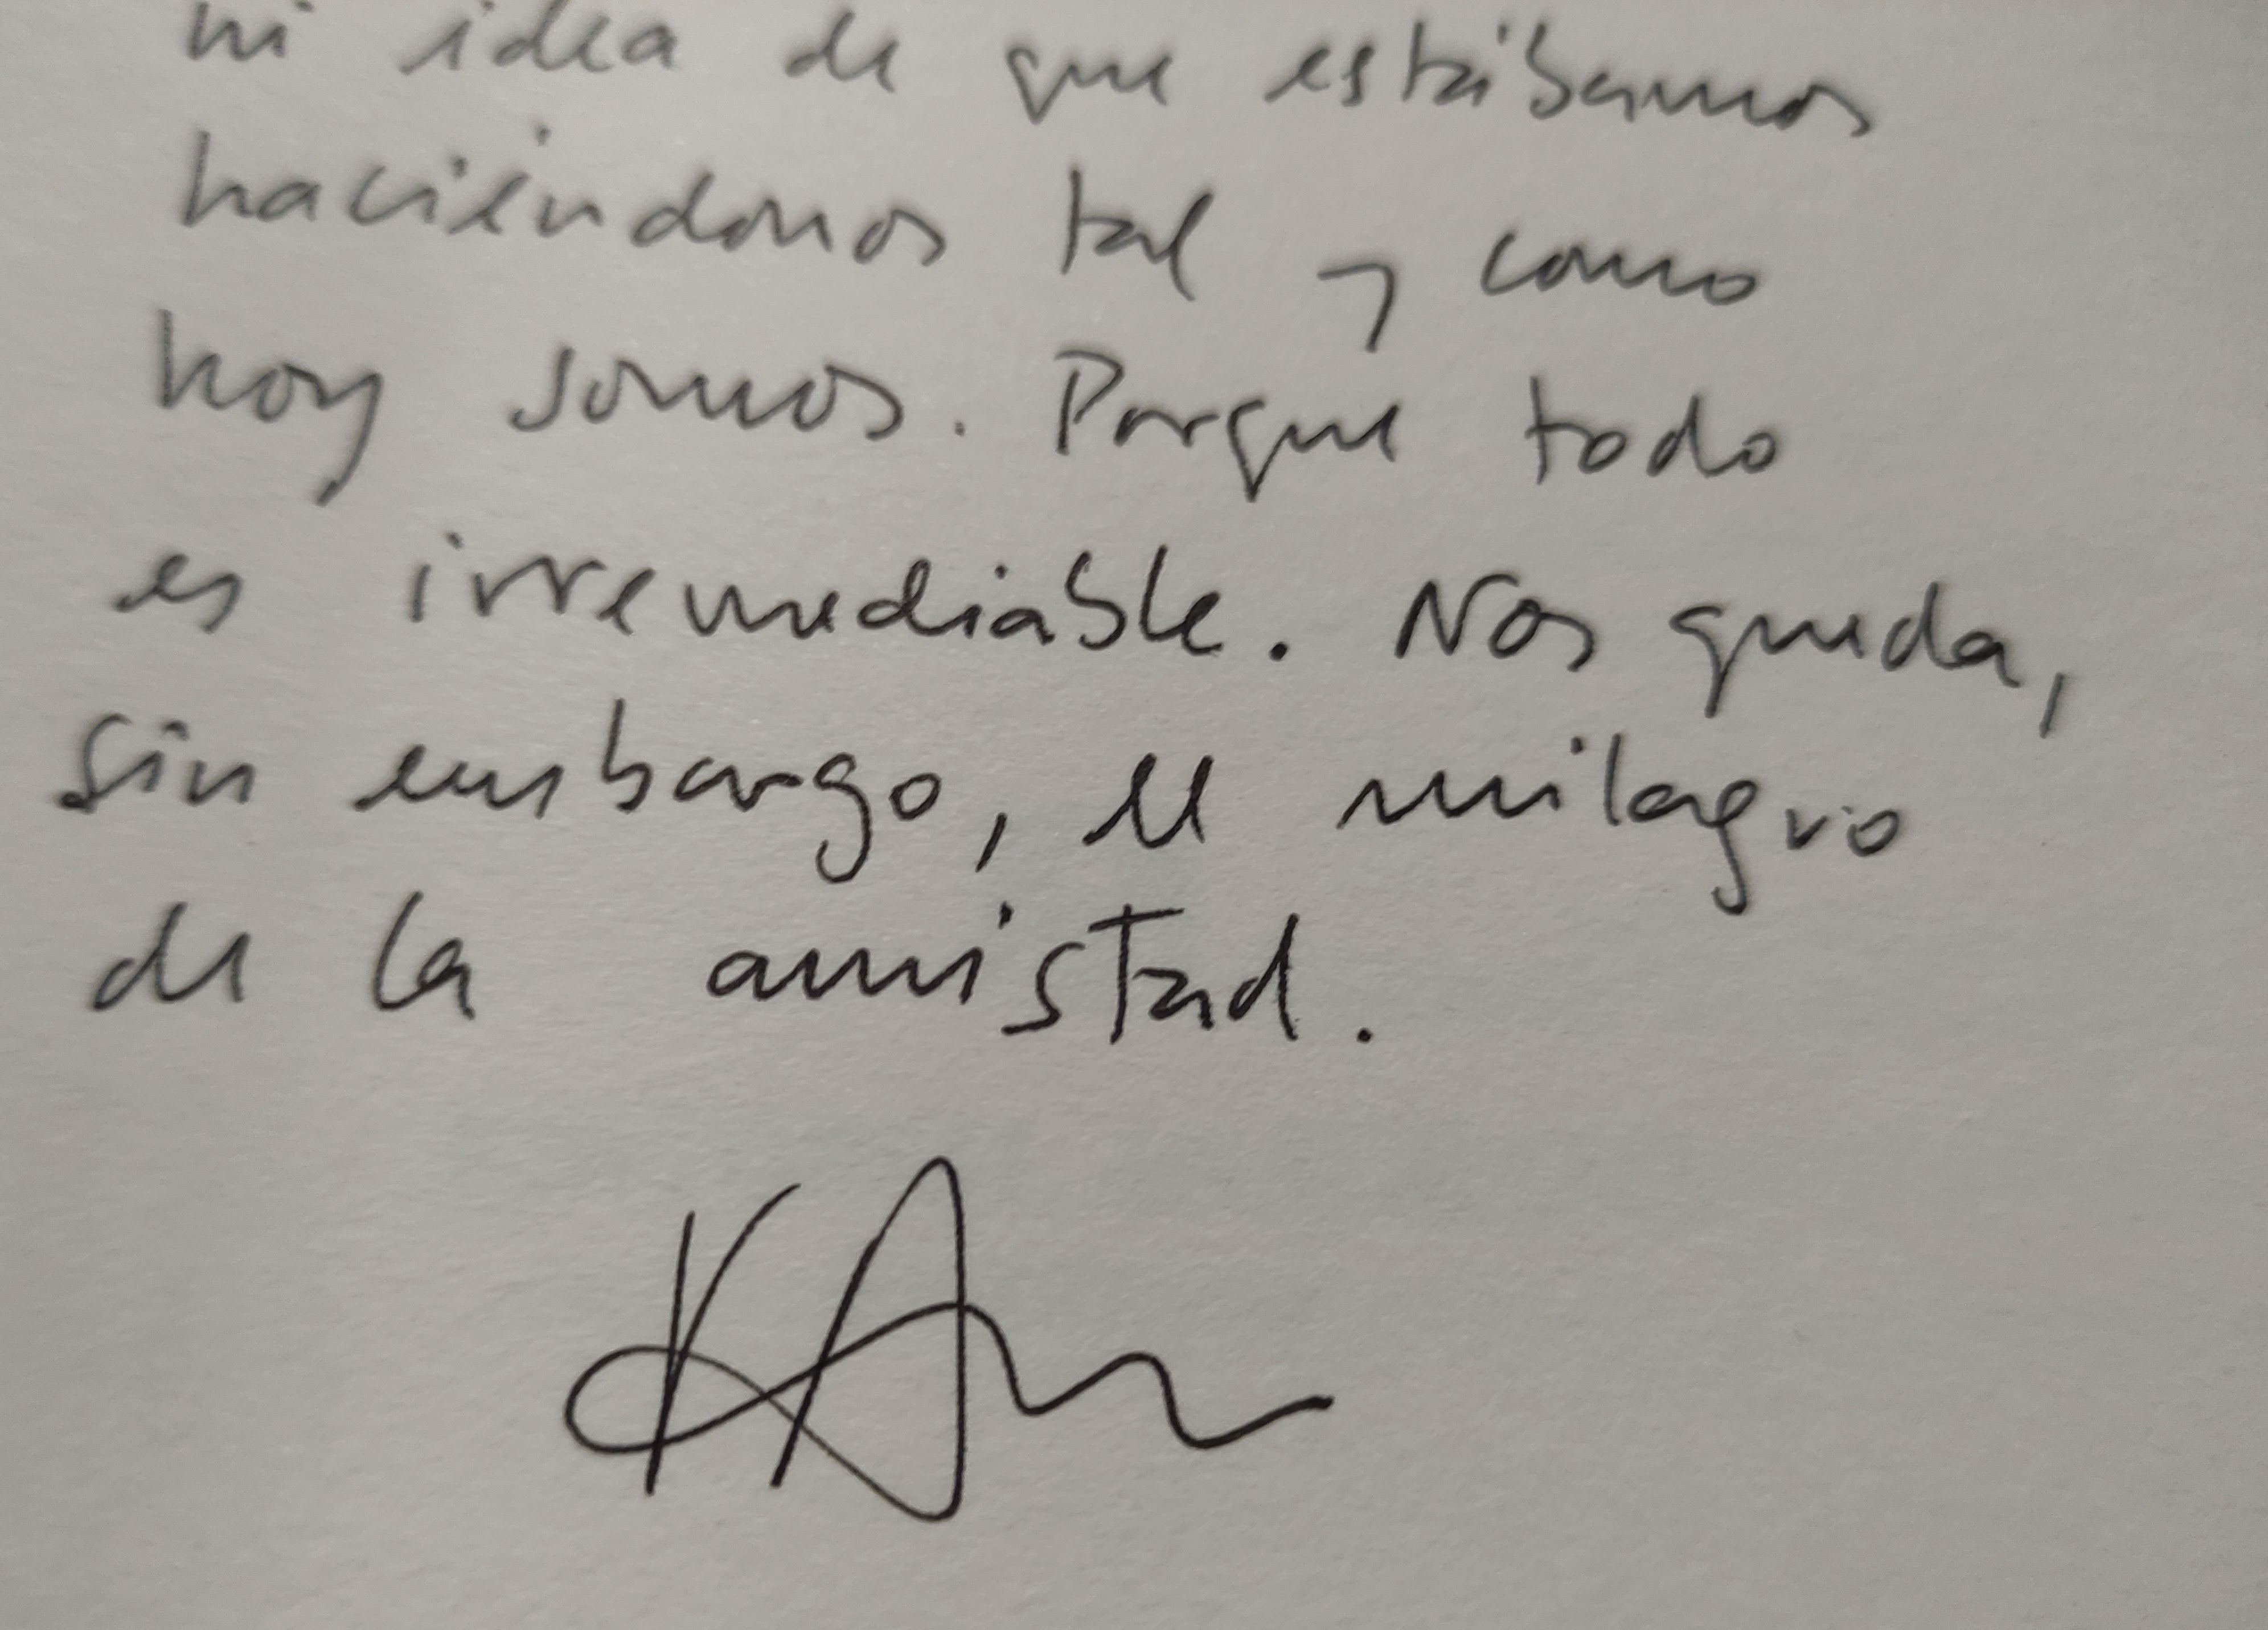 ni idea de que estábamos
haciéndonos tal y como
hoy somos. Porque todo
es irremediable. Nos queda,
sin embargo, el milagro
de la amistad.